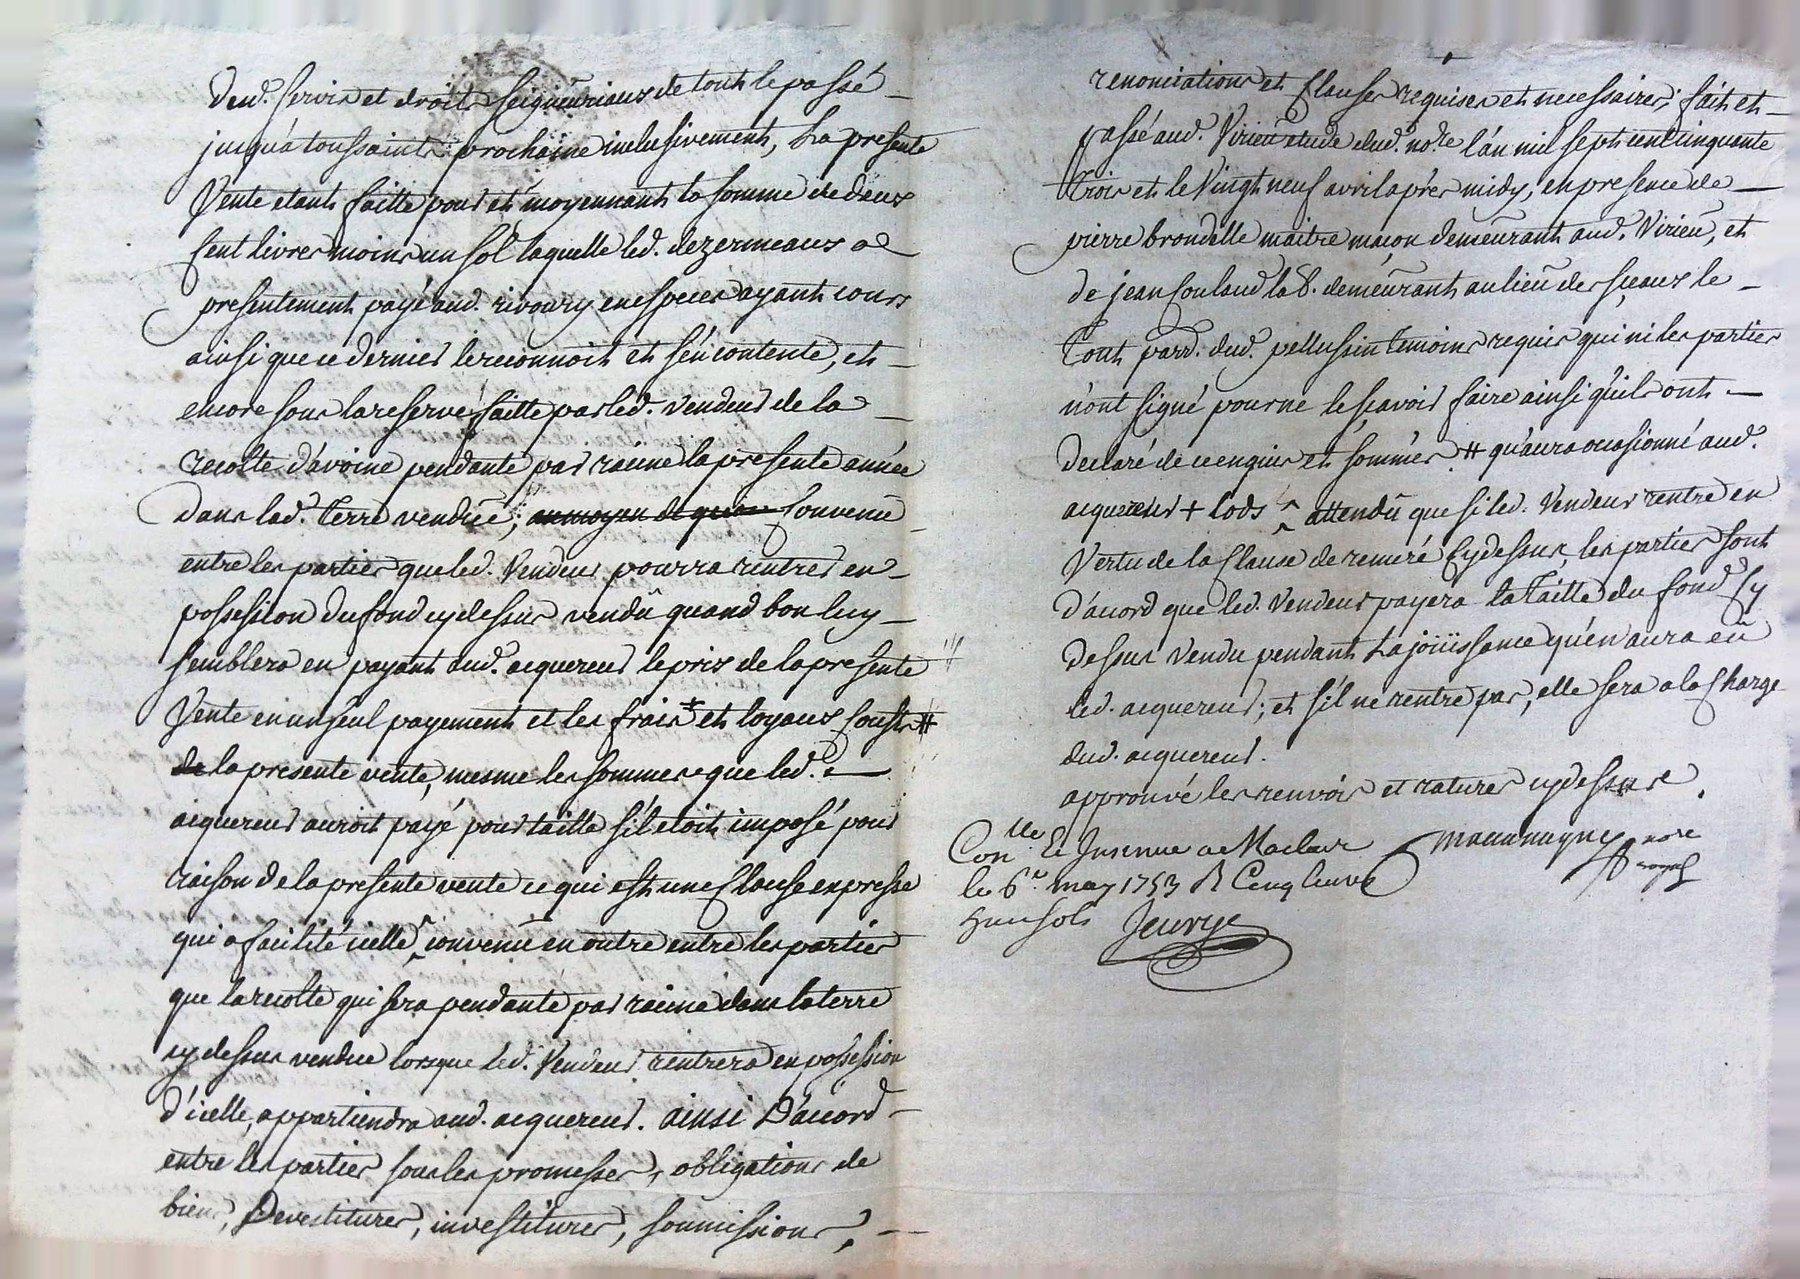 dud. servis et droits seigneuriaux de tout le passé
jusqu'a toussaints prochaine inclusivement, La presente
Vente etant faitte pour et moyennant la somme de deux
cent livres moins un sol laquelle led. dezermeaux a
presentement payé aud. rivoiry en especes ayant cours
ainsi que ce dernier le reconnoit et s'en contente, et
encore sous la reserve faitte par led. vendeur de la
recolte d'avoine pendante par racine la presente année
dans lad. terre vendüe, au moyen de quoi Convenu
entre les parties que led. Vendeur pourra rentrer en
possession du fond cy dessus vendû quand bon luy
semblera en payant aud. acquereur le prix de la presente
Vente en un seul payement et les frais + et loyaux Cousts #
de la presente vente, mesme les sommes que led.
acquereur auroit payé pour taille s'il etoit imposé pour
raison de la presente vente ce qui est une Clause expresse
qui a facilité icelle, convenu en outre entre les parties
que la recolte qui sera pendante par racine dans la terre
cy dessus vendue lorsque led. Vendeur rentrera en possession
d'icelle, appartiendra aud. acquereur. ainsi D'accord
entre les parties sous les promesses, obligations de
biens, Devestitures, investitures, soumissions,
renonciations et Clauses requises et necessaires; fait et
passé aud. Virieu etude dud. no.re l'an mil sept cent cinquante
trois et le Vingt neuf avril après midy, en presence de
pierre brondelle maitre maçon demeurant aud. Virieu, et
de jean Coulaud la B. demeurant au lieu des sçeaux le
Tout parr. dud. pellussin temoins requis qui ni les parties
n'ont signé pour ne le sçavoir faire ainsi qu'ils ont
declaré de ce enquis et sommés. # qu'aura occasionné aud.
acquereur + lods ^ attendû que si led. Vendeur rentre en
Vertu de la Clause de remeré Cy dessus, les parties sont
d'accord que led. Vendeur payera la Taille du fond Cy
dessus vendu pendant La joüissance qu'en aura eu
led. acquereur; et s'il ne rentre pas, elle sera a la Charge
dud. acquereur.
approuvé les renvois et ratures cy dessus.
Con.lle & Insinué a Maclas
le 6e. may 1753 R Cinq
sols
no.re
royal